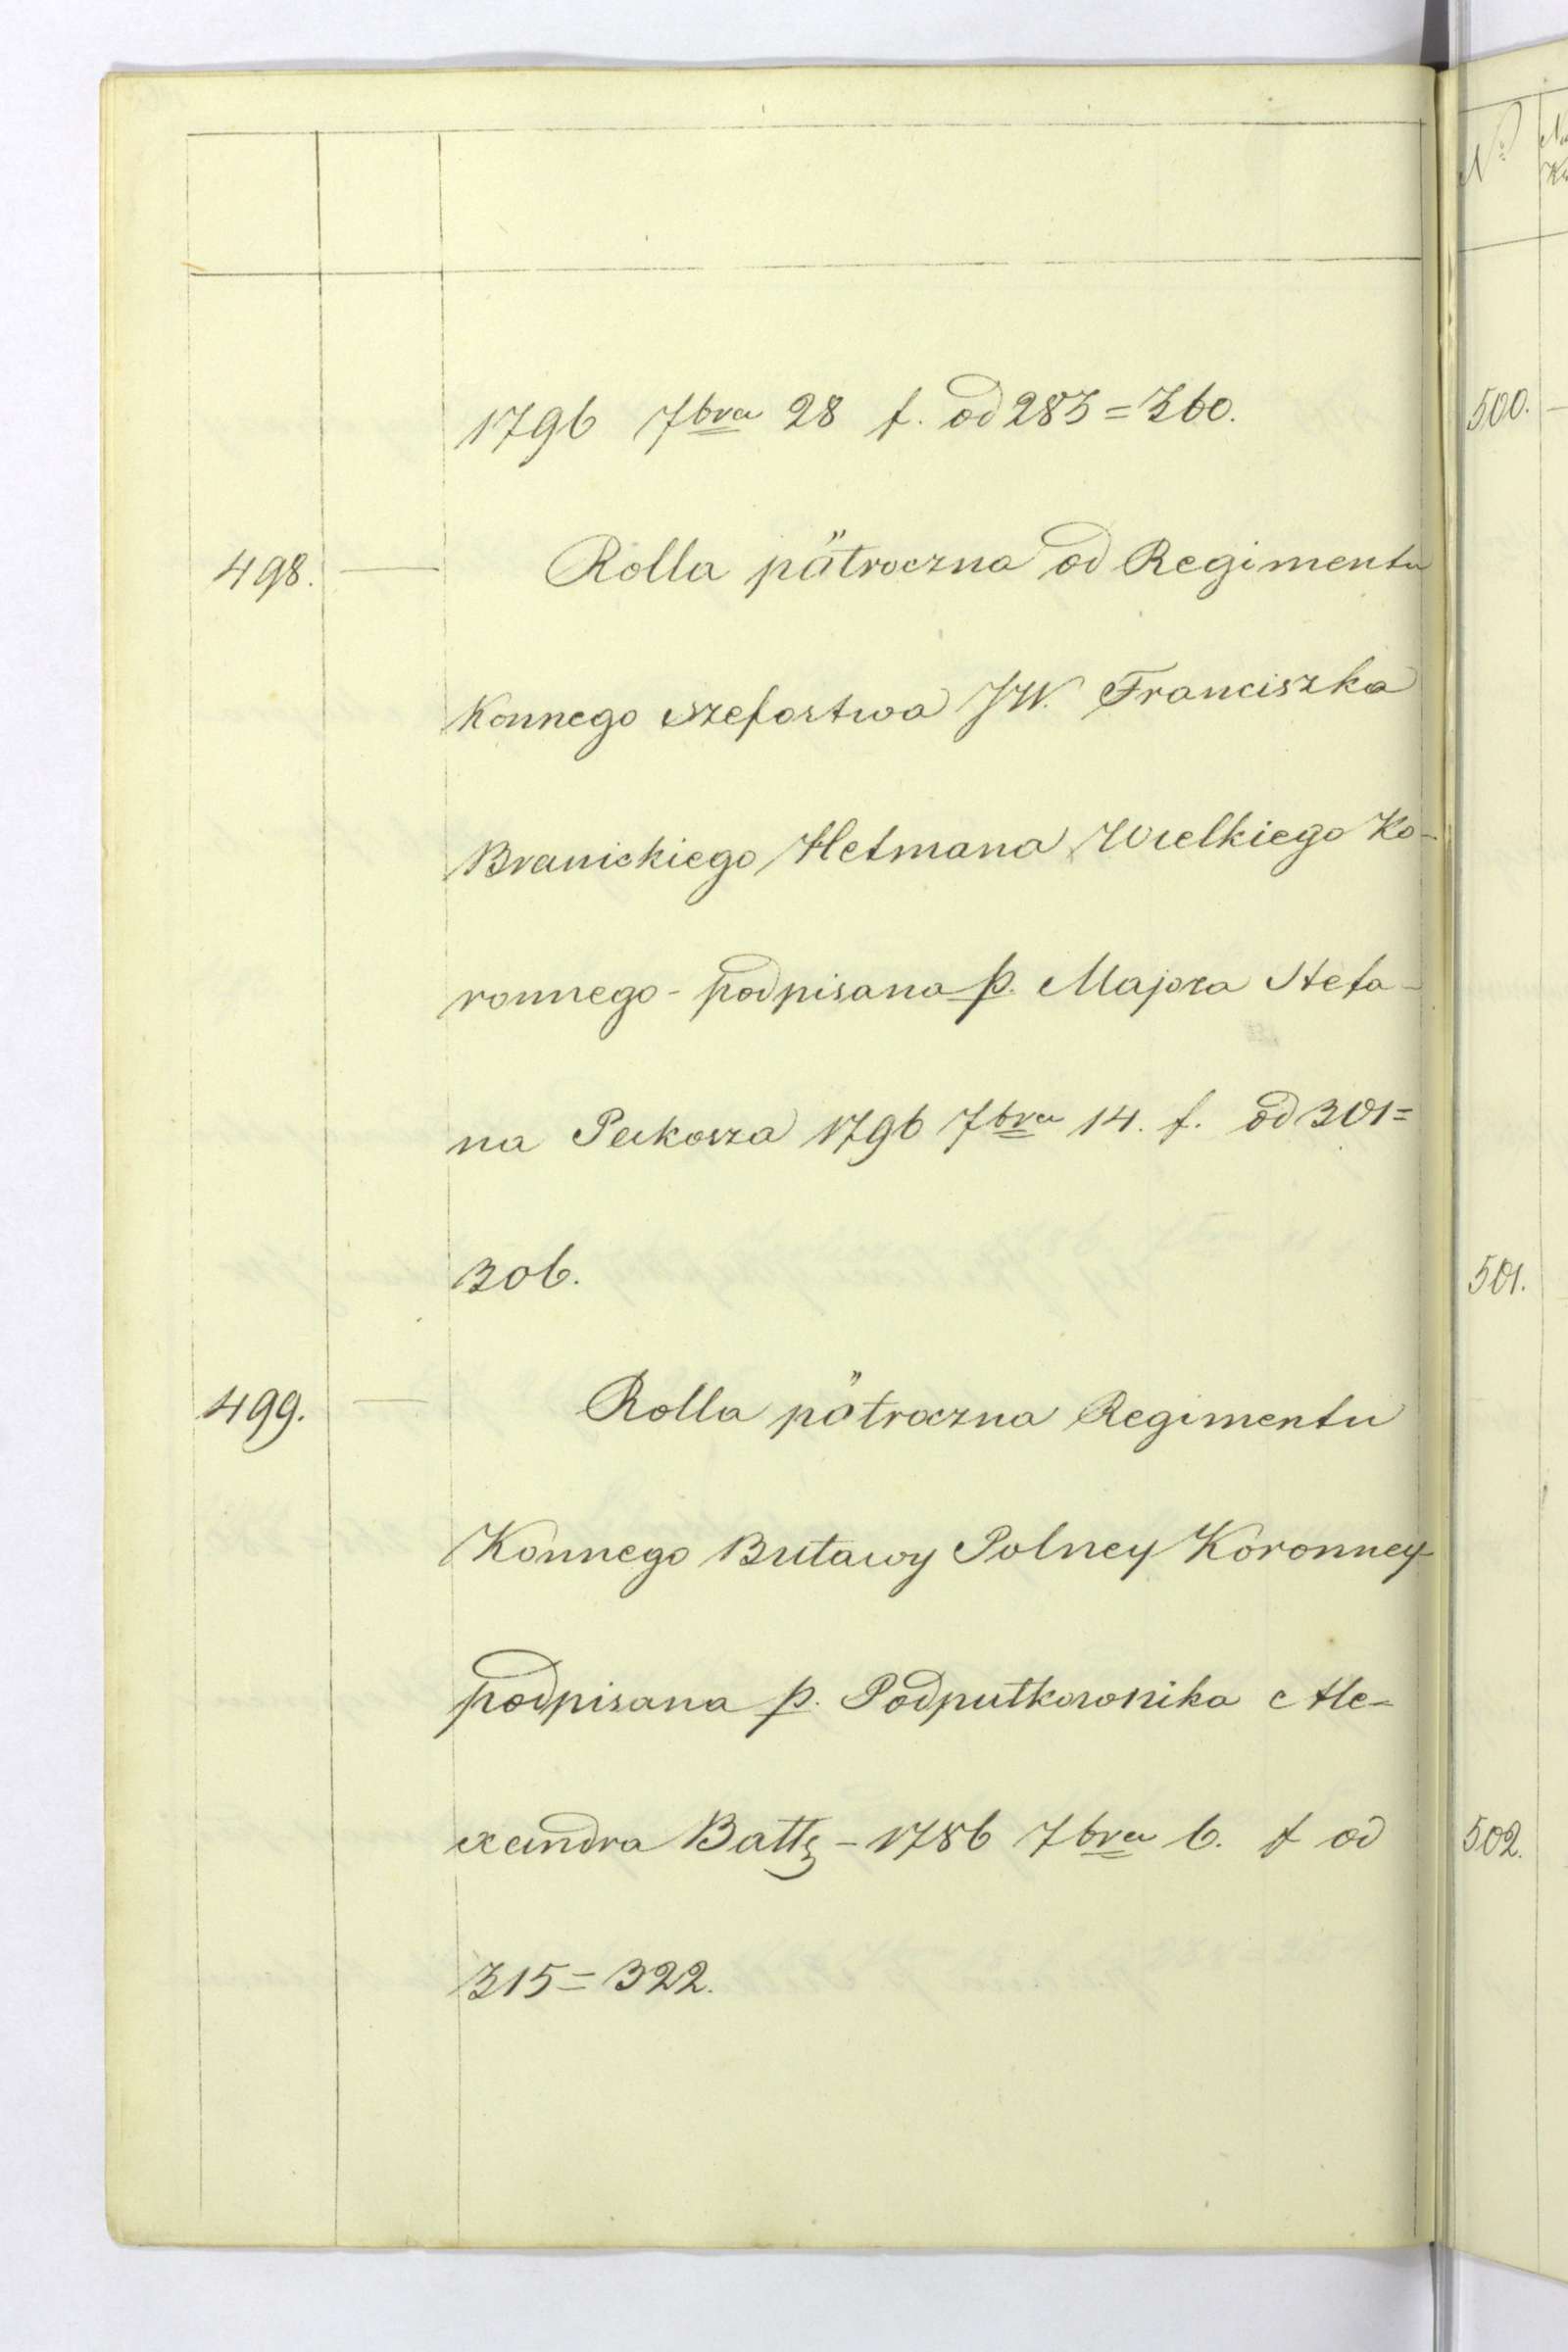 1796 7bra 28 f. od 283=360.
498. — Rolla pötroczna od Regimentu
Konnego szefostwa JW. Franciszka
Branickiego Hetmana Wielkiego Ko-
ronnego - podpisana p. Majora Stefa-
na Peikosza 1796 7bra 14. f. od 301=
306.
499. — Rolla pötroczna Regimentu
Konnego Butawy Polney Koronney
podpisana p. Podputkownika Ale-
xandra Batts - 1786 7bra 6. f od
315=322.
No
500.
501.
502.